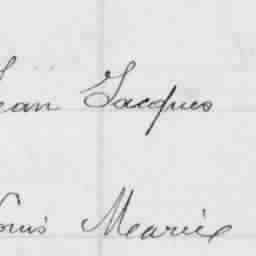 Jean Jacques
Louis Marie